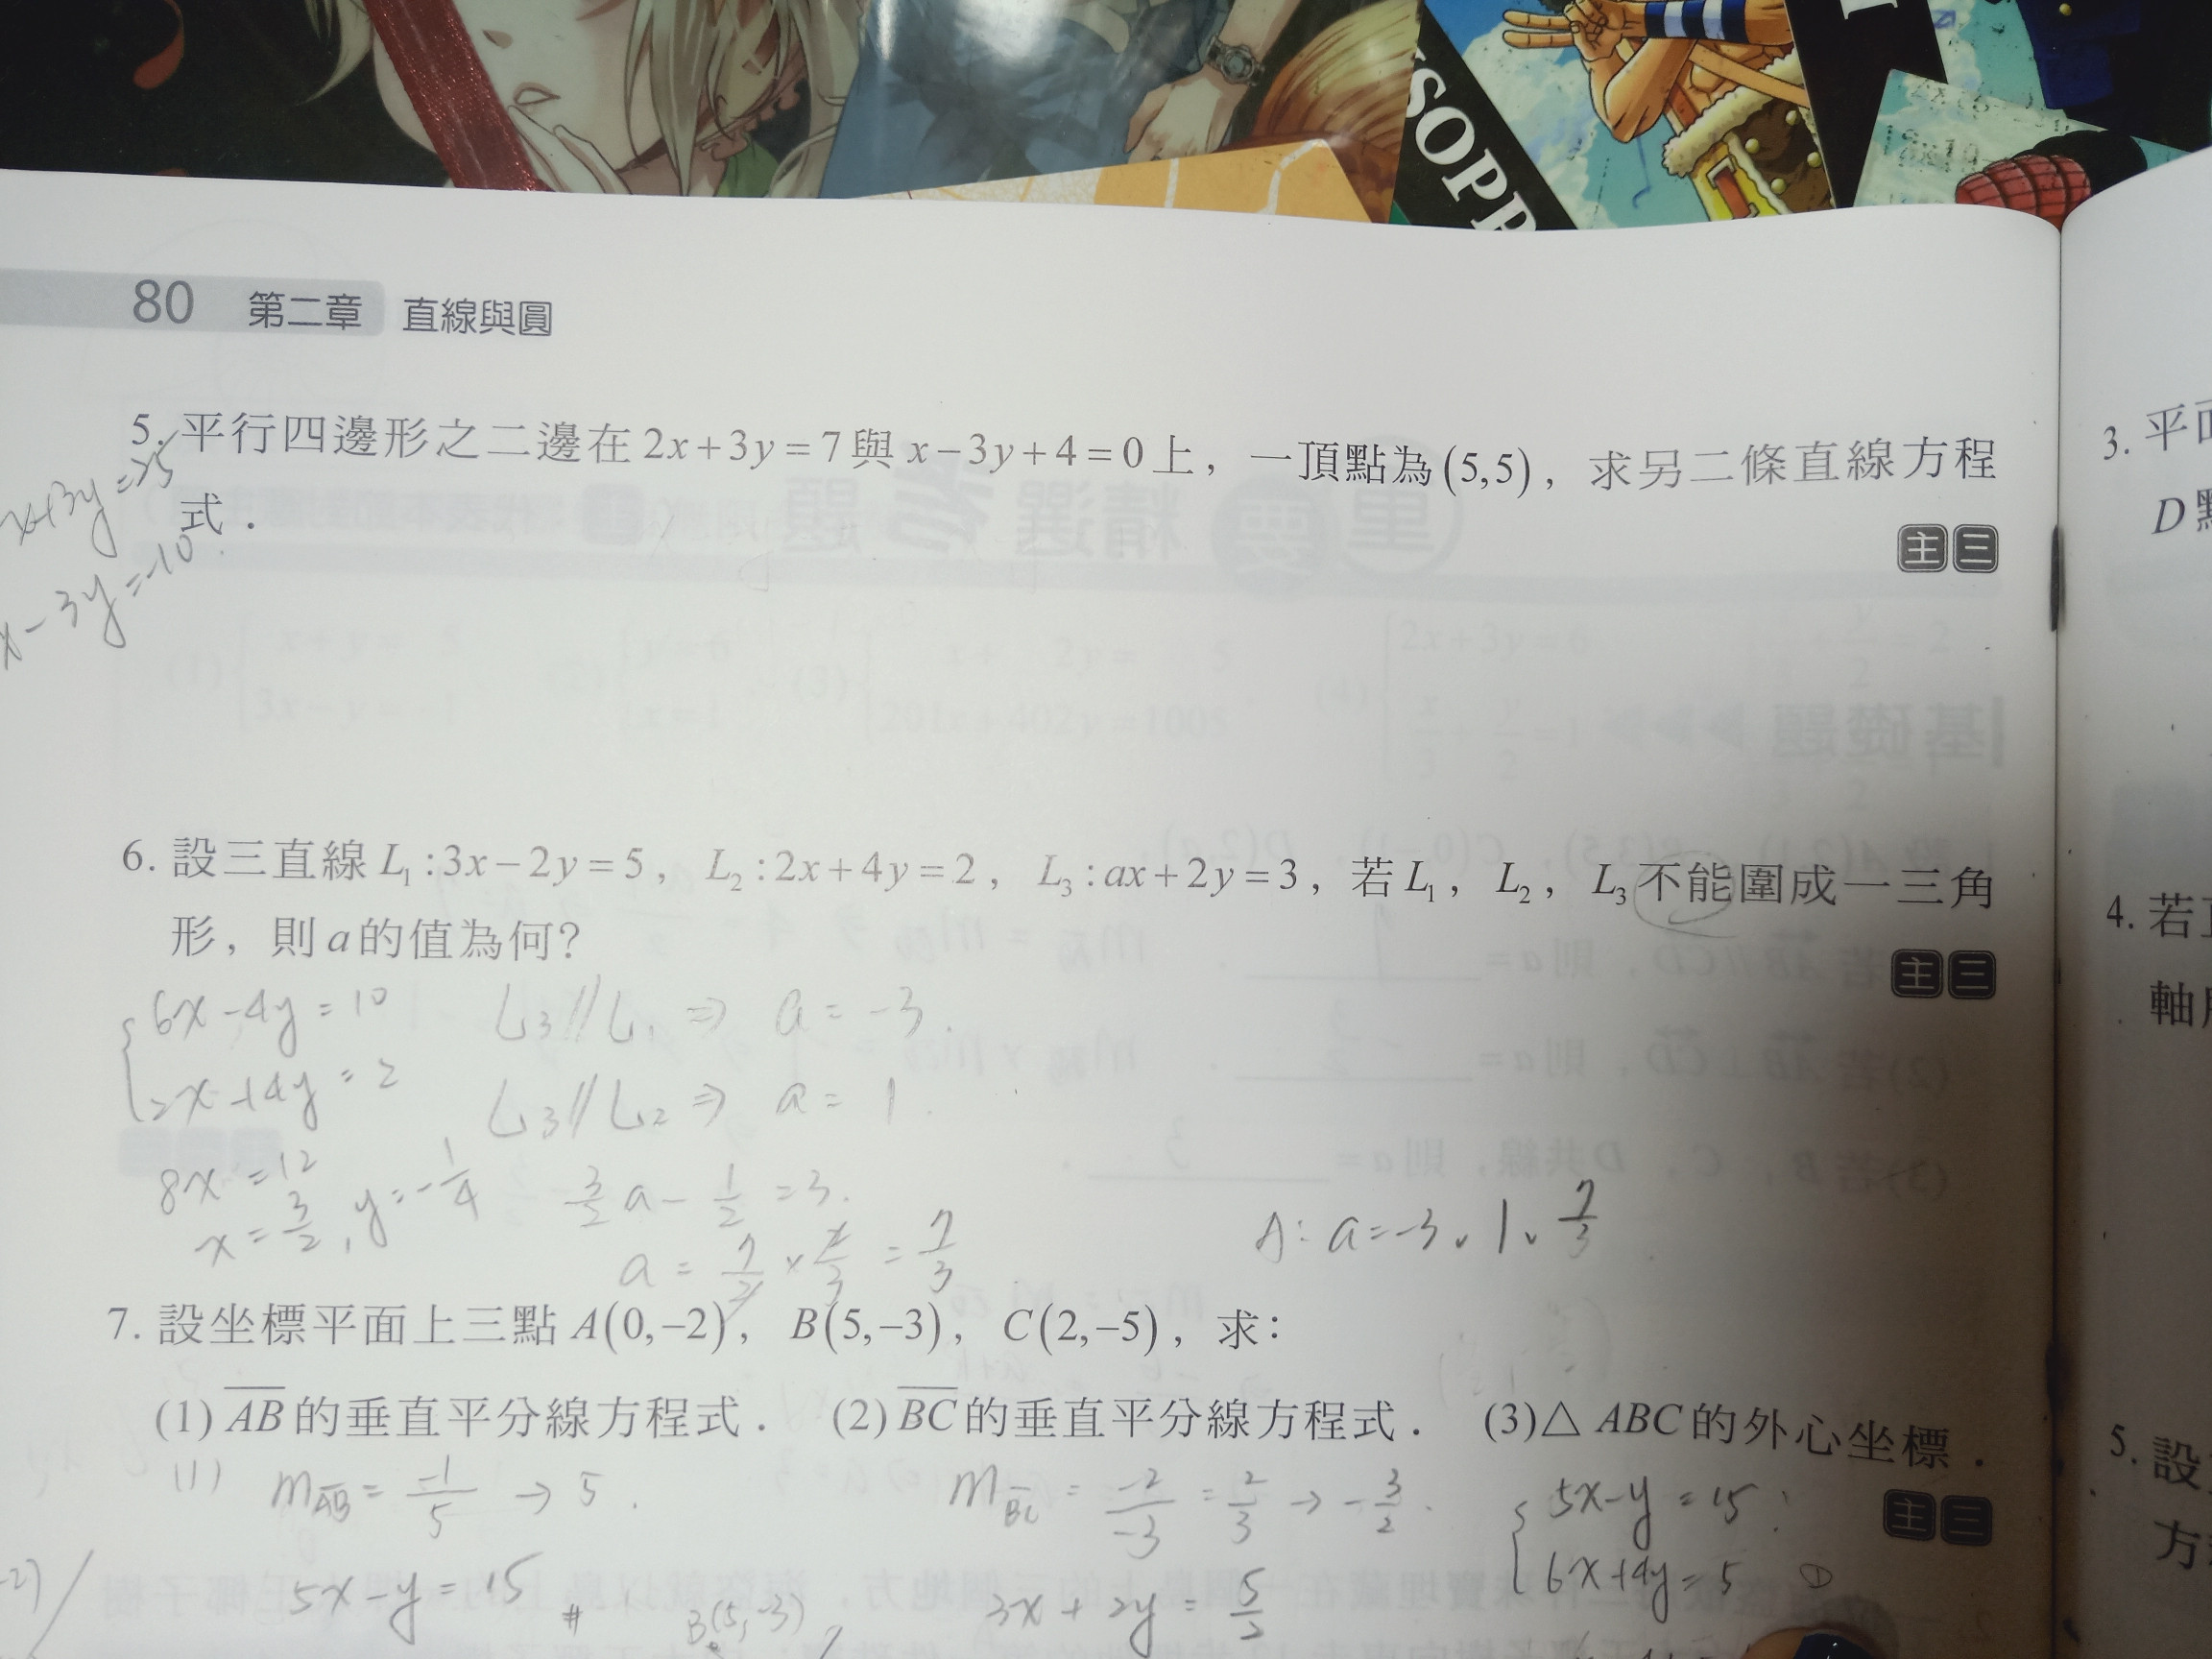 SOPP
80 第二章 直線與圓
5. 平行四邊形之二邊在 2x+3y=7 與 x−3y+4=0 上，一頂點為 (5,5)，求另二條直線方程
式．
x+3y=25
x-3y=-10
主 三
6. 設三直線 L₁:3x−2y=5，L₂:2x+4y=2，L₃:ax+2y=3，若 L₁，L₂，L₃ 不能圍成一三角
形，則 a 的值為何？
主 三
6x-4y=10 L₃//L₁ ⇒ a=-3.
2x+4y=2 L₃//L₂ ⇒ a=1.
8x=12
x=3/2, y=-1/4 3/2 a - 1/2 = 3.
a = 7/2 × 2/3 = 7/3
A: a=-3、1、7/3
7. 設坐標平面上三點 A(0,−2)，B(5,−3)，C(2,−5)，求：
(1) AB 的垂直平分線方程式． (2) BC 的垂直平分線方程式． (3)△ABC 的外心坐標．
主 三
(1) m AB = -1/5 → 5. m BC = -2/-3 = 2/3 → -3/2. 5x-y=15
5x-y=15 # B(5,-3) 3x+2y=5/2 6x+4y=5 ①
3. 平
D
4. 若
軸
5. 設
方